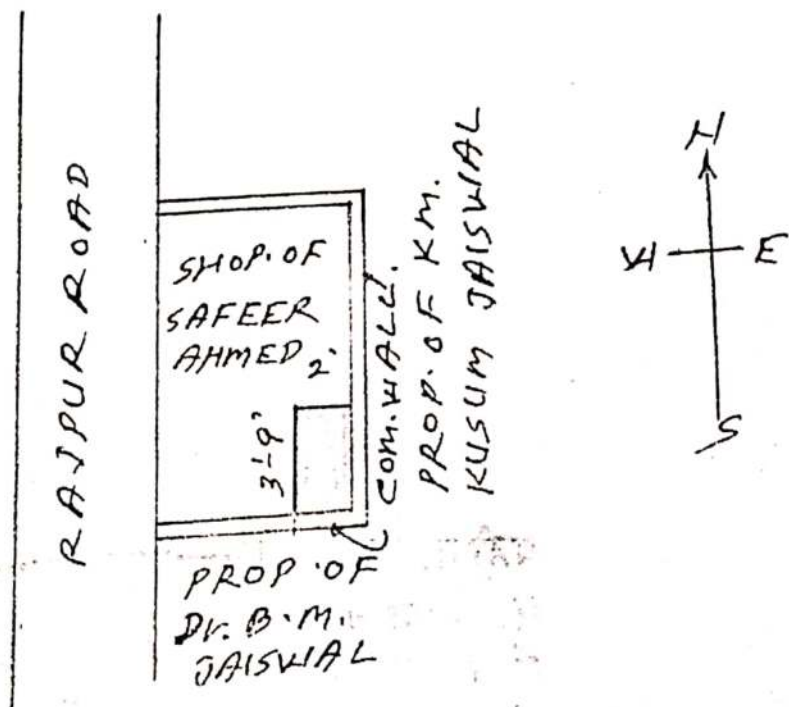 RAJPUR ROAD
SHOP. OF
SAFEER
AHMED 2'
3'-9"
COM. WALL.
PROP. OF KM.
KUSUM JAISWAL
PROP. OF
Dr. B. M.
JAISWAL
N
W E
S